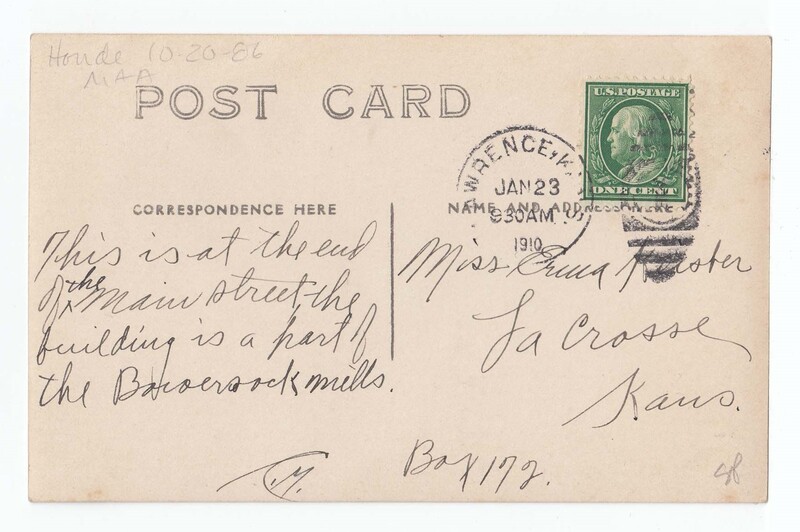 Houde 10-20-86
MAA
POST CARD
U.S. POSTAGE
ONE CENT
LAWRENCE, KANS
JAN 23
930AM
1910
CORRESPONDENCE HERE
NAME AND ADDRESS HERE
This is at the end
of the Main street, the
building is a part of
the Bowersock mills.
Miss Erma
La Crosse
Kans.
Box 172.